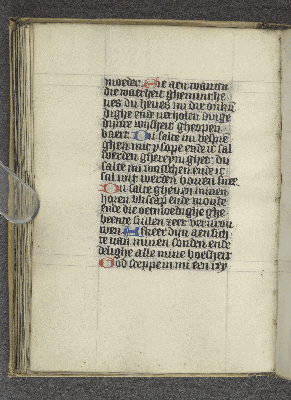 moeder. Sie aen wantu
die waerheit ghemint he
ues du heues mi die onku
dighe ende verholen dinge
dijnre wijsheit gheopen
baert. Du salte mi bespre
ghen mit ysope ende ic sal
werden ghereynighet: du
salte mi wasschen ende ic
sal wit werden bouen snee.
Du salte gheuen minen
horen bliscap ende vroude
ende die oetmoedighe ghe
beente sullen zeer verurou
wen. Afkeer dijn aensich
te van minen sonden ende
delighe alle mine boesheit
God sceppe in mi een rey